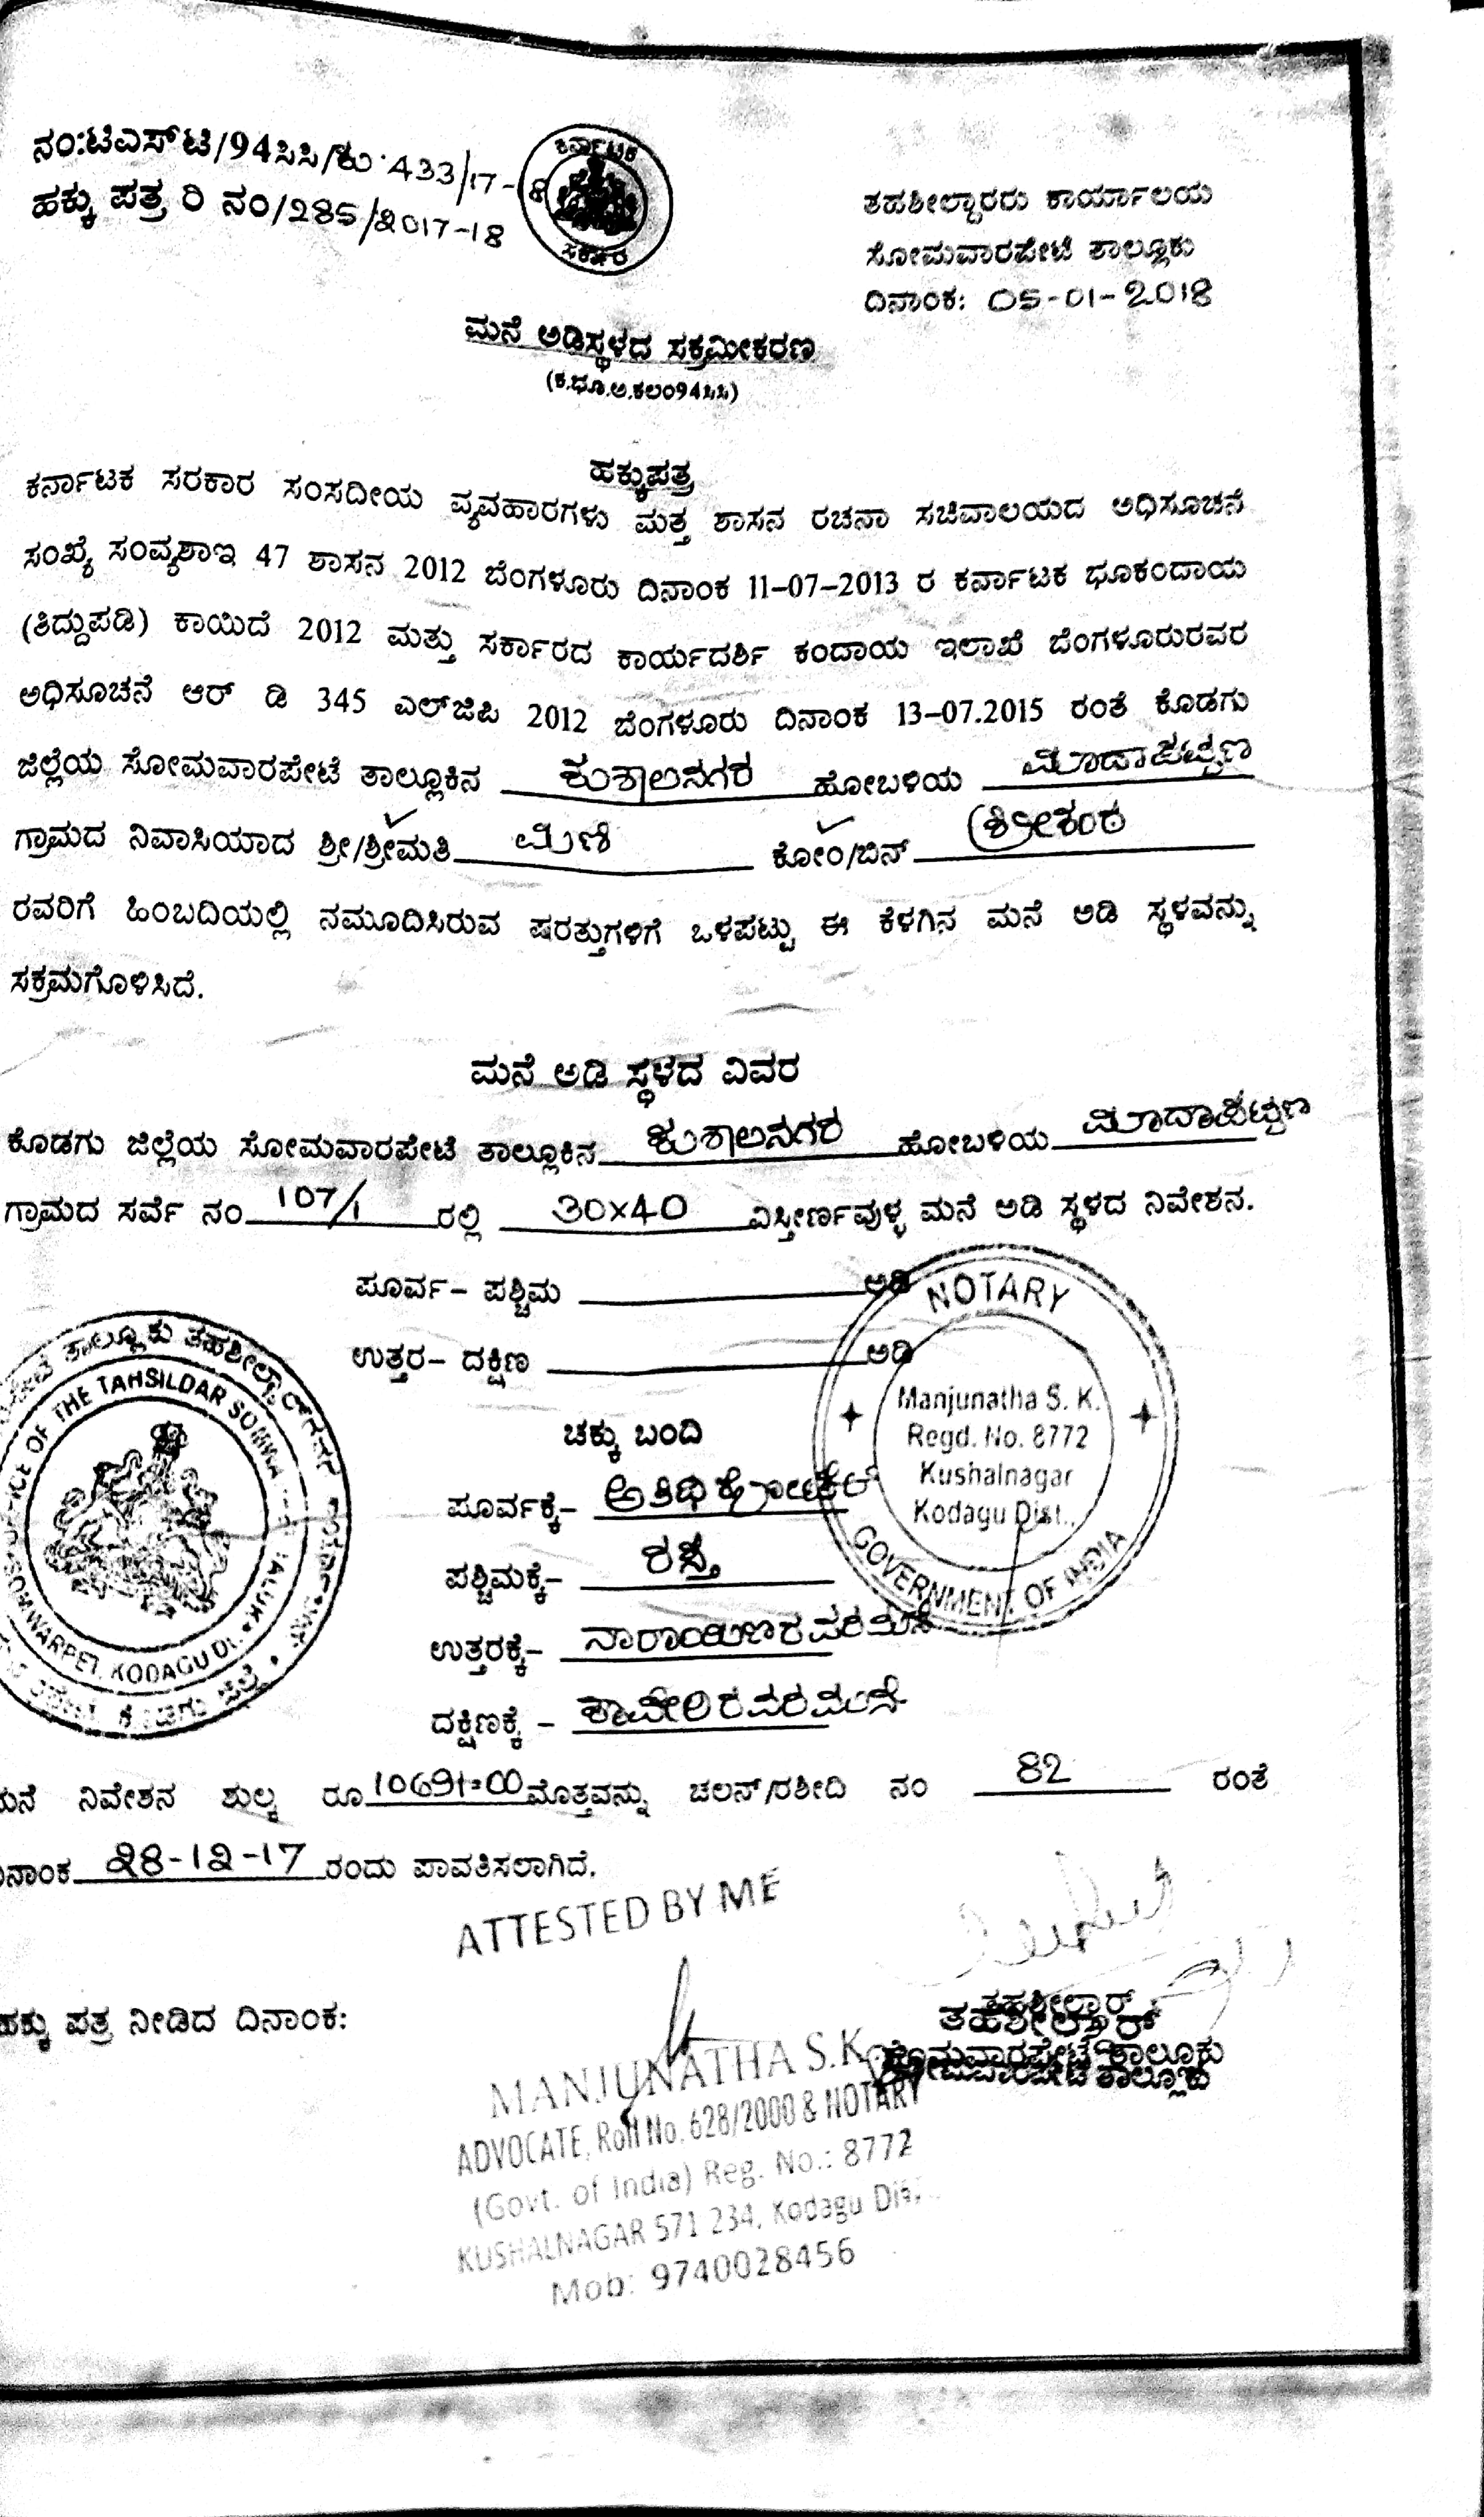 ನಂ:ಟಿಎಸ್‌ಟಿ/94ಸಿಸಿ/ಕು.433/17-18
ಹಕ್ಕು ಪತ್ರ ರಿ ನಂ/285/2017-18
ಕರ್ನಾಟಕ
ಸರ್ಕಾರ
ತಹಶೀಲ್ದಾರರು ಕಾರ್ಯಾಲಯ
ಸೋಮವಾರಪೇಟೆ ತಾಲ್ಲೂಕು
ದಿನಾಂಕ: 05-01-2018
ಮನೆ ಅಡಿಸ್ಥಳದ ಸಕ್ರಮೀಕರಣ
(ಕ.ಭೂ.ಅ.ಕಲಂ94ಸಿಸಿ)
ಹಕ್ಕುಪತ್ರ
ಕರ್ನಾಟಕ ಸರಕಾರ ಸಂಸದೀಯ ವ್ಯವಹಾರಗಳು ಮತ್ತ ಶಾಸನ ರಚನಾ ಸಚಿವಾಲಯದ ಅಧಿಸೂಚನೆ
ಸಂಖ್ಯೆ ಸಂವ್ಯಶಾಇ 47 ಶಾಸನ 2012 ಬೆಂಗಳೂರು ದಿನಾಂಕ 11-07-2013 ರ ಕರ್ನಾಟಕ ಭೂಕಂದಾಯ
(ತಿದ್ದುಪಡಿ) ಕಾಯಿದೆ 2012 ಮತ್ತು ಸರ್ಕಾರದ ಕಾರ್ಯದರ್ಶಿ ಕಂದಾಯ ಇಲಾಖೆ ಬೆಂಗಳೂರುರವರ
ಅಧಿಸೂಚನೆ ಆರ್ ಡಿ 345 ಎಲ್‌ಜಿಪಿ 2012 ಬೆಂಗಳೂರು ದಿನಾಂಕ 13-07.2015 ರಂತೆ ಕೊಡಗು
ಜಿಲ್ಲೆಯ ಸೋಮವಾರಪೇಟೆ ತಾಲ್ಲೂಕಿನ ಕುಶಾಲನಗರ ಹೋಬಳಿಯ ಮಾದಾಪಟ್ಟಣ
ಗ್ರಾಮದ ನಿವಾಸಿಯಾದ ಶ್ರೀ/ಶ್ರೀಮತಿ ಮಣಿ ಕೋಂ/ಬಿನ್ ಶ್ರೀಕಂಠ
ರವರಿಗೆ ಹಿಂಬದಿಯಲ್ಲಿ ನಮೂದಿಸಿರುವ ಷರತ್ತುಗಳಿಗೆ ಒಳಪಟ್ಟು ಈ ಕೆಳಗಿನ ಮನೆ ಅಡಿ ಸ್ಥಳವನ್ನು
ಸಕ್ರಮಗೊಳಿಸಿದೆ.
ಮನೆ ಅಡಿ ಸ್ಥಳದ ವಿವರ
ಕೊಡಗು ಜಿಲ್ಲೆಯ ಸೋಮವಾರಪೇಟೆ ತಾಲ್ಲೂಕಿನ ಕುಶಾಲನಗರ ಹೋಬಳಿಯ ಮಾದಾಪಟ್ಟಣ
ಗ್ರಾಮದ ಸರ್ವೆ ನಂ 107/1 ರಲ್ಲಿ 30x40 ವಿಸ್ತೀರ್ಣವುಳ್ಳ ಮನೆ ಅಡಿ ಸ್ಥಳದ ನಿವೇಶನ.
ಪೂರ್ವ- ಪಶ್ಚಿಮ ಅಡಿ
ಉತ್ತರ- ದಕ್ಷಿಣ ಅಡಿ
NOTARY
Manjunatha S. K.
Regd. No. 8772
Kushalnagar
Kodagu Dist.,
GOVERNMENT OF INDIA
ತಾಲ್ಲೂಕು ತಹಶೀಲ್ದಾರ್
OFFICE OF THE TAHSILDAR SOMWARPET TALUK
SOMWARPET, KODAGU DT.
ಚಕ್ಕು ಬಂದಿ
ಪೂರ್ವಕ್ಕೆ- ಅತಿಥಿ ಹೋಟೆಲ್
ಪಶ್ಚಿಮಕ್ಕೆ- ರಸ್ತೆ
ಉತ್ತರಕ್ಕೆ- ನಾರಾಯಣರವರ ಮನೆ
ದಕ್ಷಿಣಕ್ಕೆ - ಕಾವೇರಿರವರ ಮನೆ
ಮನೆ ನಿವೇಶನ ಶುಲ್ಕ ರೂ 10691=00 ಮೊತ್ತವನ್ನು ಚಲನ್/ರಶೀದಿ ನಂ 82 ರಂತೆ
ದಿನಾಂಕ 28-12-17 ರಂದು ಪಾವತಿಸಲಾಗಿದೆ.
ATTESTED BY ME
ಹಕ್ಕು ಪತ್ರ ನೀಡಿದ ದಿನಾಂಕ:
ತಹಶೀಲ್ದಾರ್
ಸೋಮವಾರಪೇಟೆ ತಾಲ್ಲೂಕು
MANJUNATHA S.K.
ADVOCATE, Roll No. 628/2000 & NOTARY
(Govt. of India) Reg. No.: 8772
KUSHALNAGAR 571 234, Kodagu Dist.
Mob: 9740028456